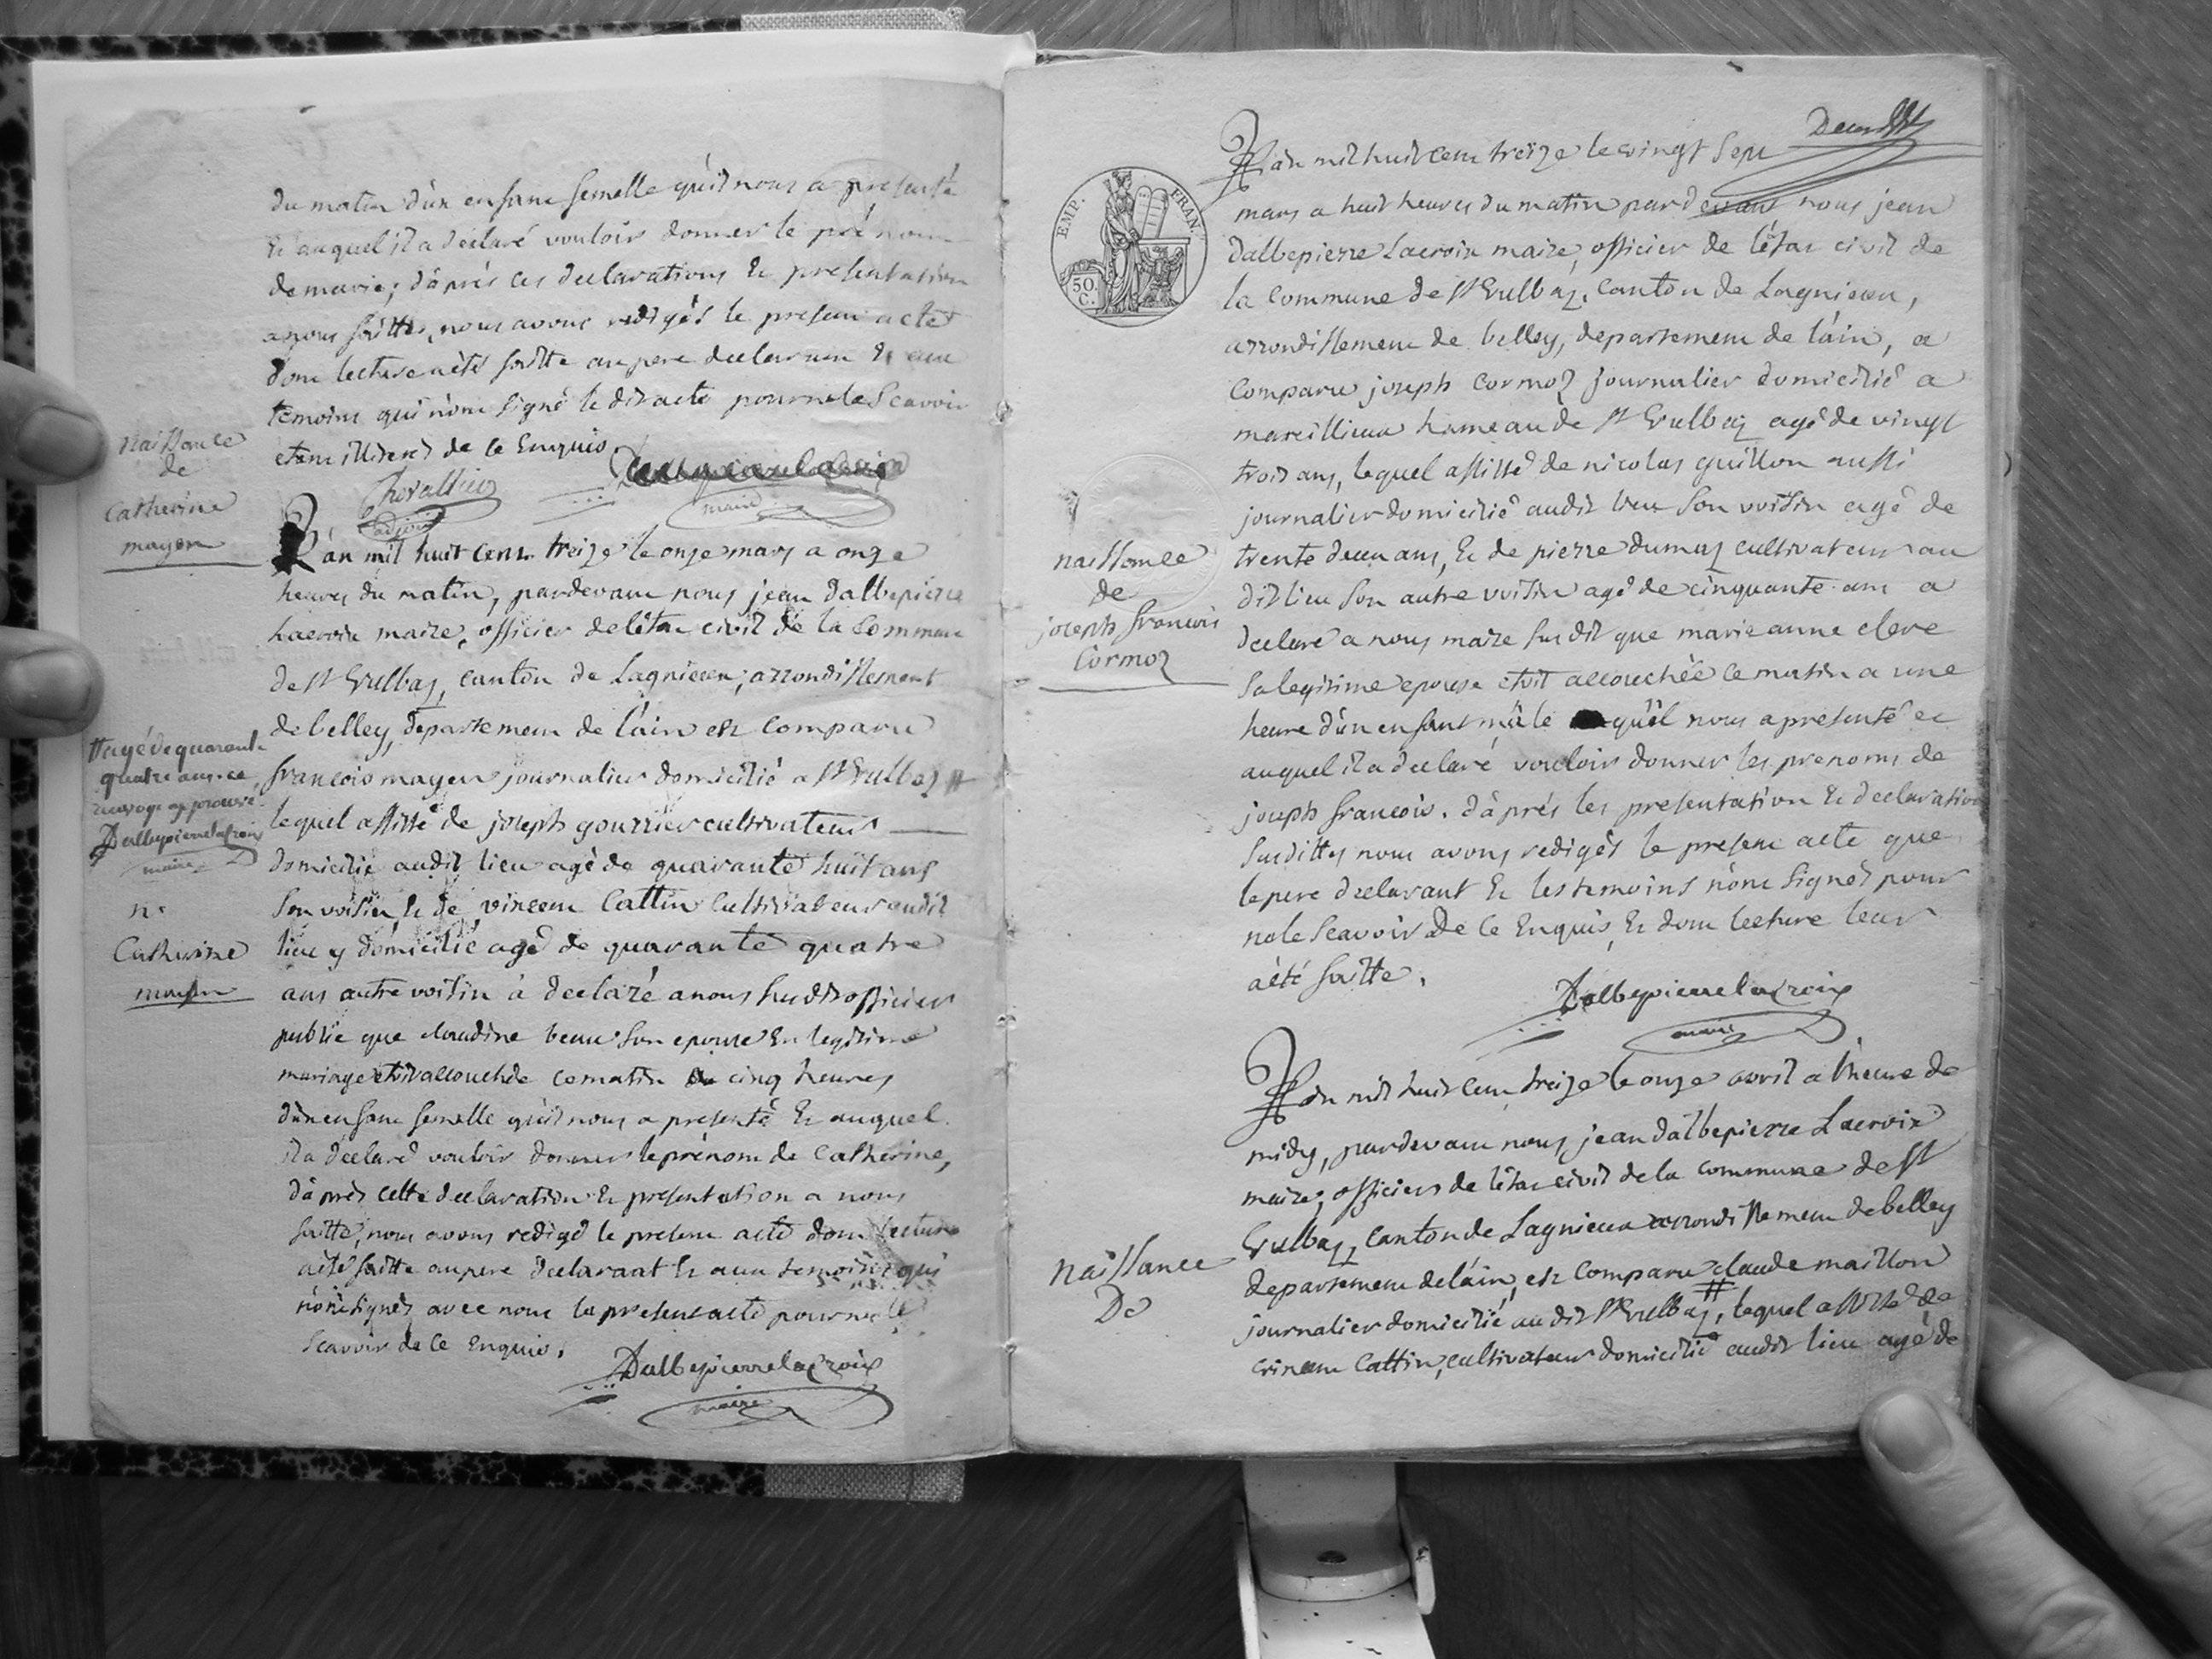 du matin d'un enfant femelle qu'il nous a presenté
Et auquel il a déclaré vouloir donner le prénom
de marie; d'après ces declarations Et presentation
a nous faittes, nous avons redigés le present acte
dont lecture a été faitte au pere declarant Et aux
temoins qui n'ont signé le dit acte pour ne le Scavoir
de ce Enquis
Chevallier
adjoint
maire
naissance
de
Catherine
mayen
L'an mil huit cent treize le onze mars a onze
heures du matin, pardevant nous jean Dalbepierre
Lacroix maire, officier de l'état civil de la Commune
de St Vulbaz, canton de Lagnieux, arrondissement
de belley, departement de l'ain est Comparu
francois mayen journalier domicilié a St Vulbaz #
# agé de quarante
quatre ans. ce
renvoye approuvé
Dalbepierrelacroix
maire
lequel assisté de joseph gourrier cultivateur
domicilié audit lieu agé de quarante huit ans
Son voisin Et de vincent Cattin Cultivateur audit
lieu y domicilié agé de quarante quatre
ans autre voisin a declaré a nous susdit officier
public que claudine beau son epouse En legitime
mariage etoit accouchée ce matin a cinq heures
d'un enfant femelle qu'il nous a presenté Et auquel
il a déclaré vouloir donner le prénom de Catherine,
d'après cette declaration Et presentation a nous
faitte, nous avons redigé le present acte dont lecture
a été faitte au pere declarant Et aux temoins qui
n'ont signés avec nous le present acte pour ne le
Scavoir de ce Enquis.
Dalbepierrelacroix
maire
n.
Catherine
mayen
EMP. FRAN.
50.
C.
L'an mil huit cent treize le vingt Sept
mars a huit heures du matin pardevant nous jean
Dalbepierre Lacroix maire, officier de l'état civil de
la Commune de St Vulbaz, Canton de Lagnieux,
arrondissement de belley, departement de l'ain, a
Comparu joseph Cormoz journalier domicilié a
marcillieux hameau de St Vulbaz agé de vingt
trois ans, lequel assisté de nicolas guillon aussi
journalier domicilié audit lieu Son voisin agé de
trente deux ans, Et de pierre dumas cultivateur au
dit lieu Son autre voisin agé de cinquante ans a
declaré a nous maire susdit que marie anne clere
Sa legitime epouse etoit accouchée ce matin a une
heure d'un enfant mâle qu'il nous a presenté et
auquel il a declaré vouloir donner les prenoms de
joseph francois. d'après les presentation Et declaration
Susdittes nous avons redigés le present acte que
le pere declarant Et les temoins n'ont Signés pour
ne le Scavoir de ce Enquis, Et dont lecture leur
a été faitte.
Dalbepierrelacroix
maire
naissance
de
joseph francois
Cormoz
L'an mil huit cent treize le onze avril a l'heure de
midy, pardevant nous jean dalbepierre Lacroix
maire, officier de l'état civil de la commune de St
Vulbaz, Canton de Lagnieux arrondissement de belley
departement de l'ain, est Comparu claude maillon
journalier domicilié au dit St Vulbaz, # lequel assisté de
vincent Cattin, cultivateur domicilié audit lieu agé de
naissance
De